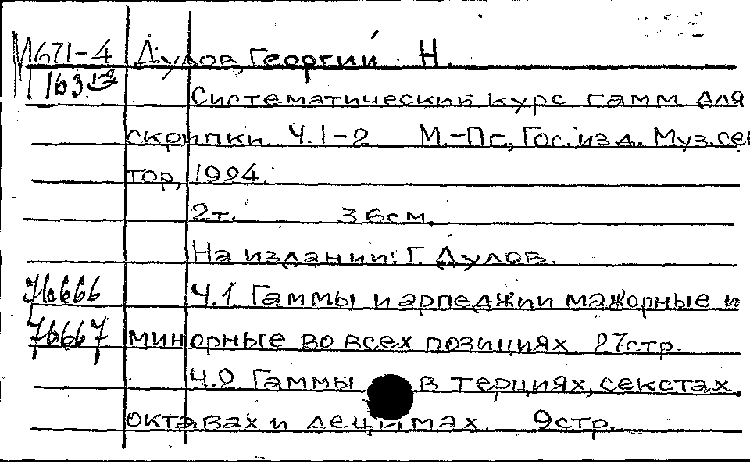 М671-4 Дулов, Георгий Н.
163
Систематический курс гамм для
скрипки. Ч.1-2 М.-Пг, Гос. изд. Муз.сек
тор, 1924.
2т. 36см.
На издании: Г. Дулов.
76666 Ч.1 Гаммы и арпеджии мажорные и
76667 минорные во всех позициях 27стр.
Ч.2 Гаммы в терциях, секстах,
октавах и децимах. 9стр.